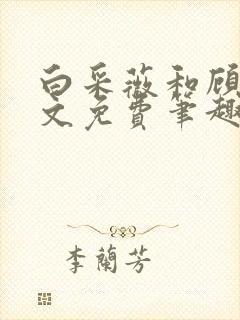 白采薇和顾
文免费笔趣
李蘭芳